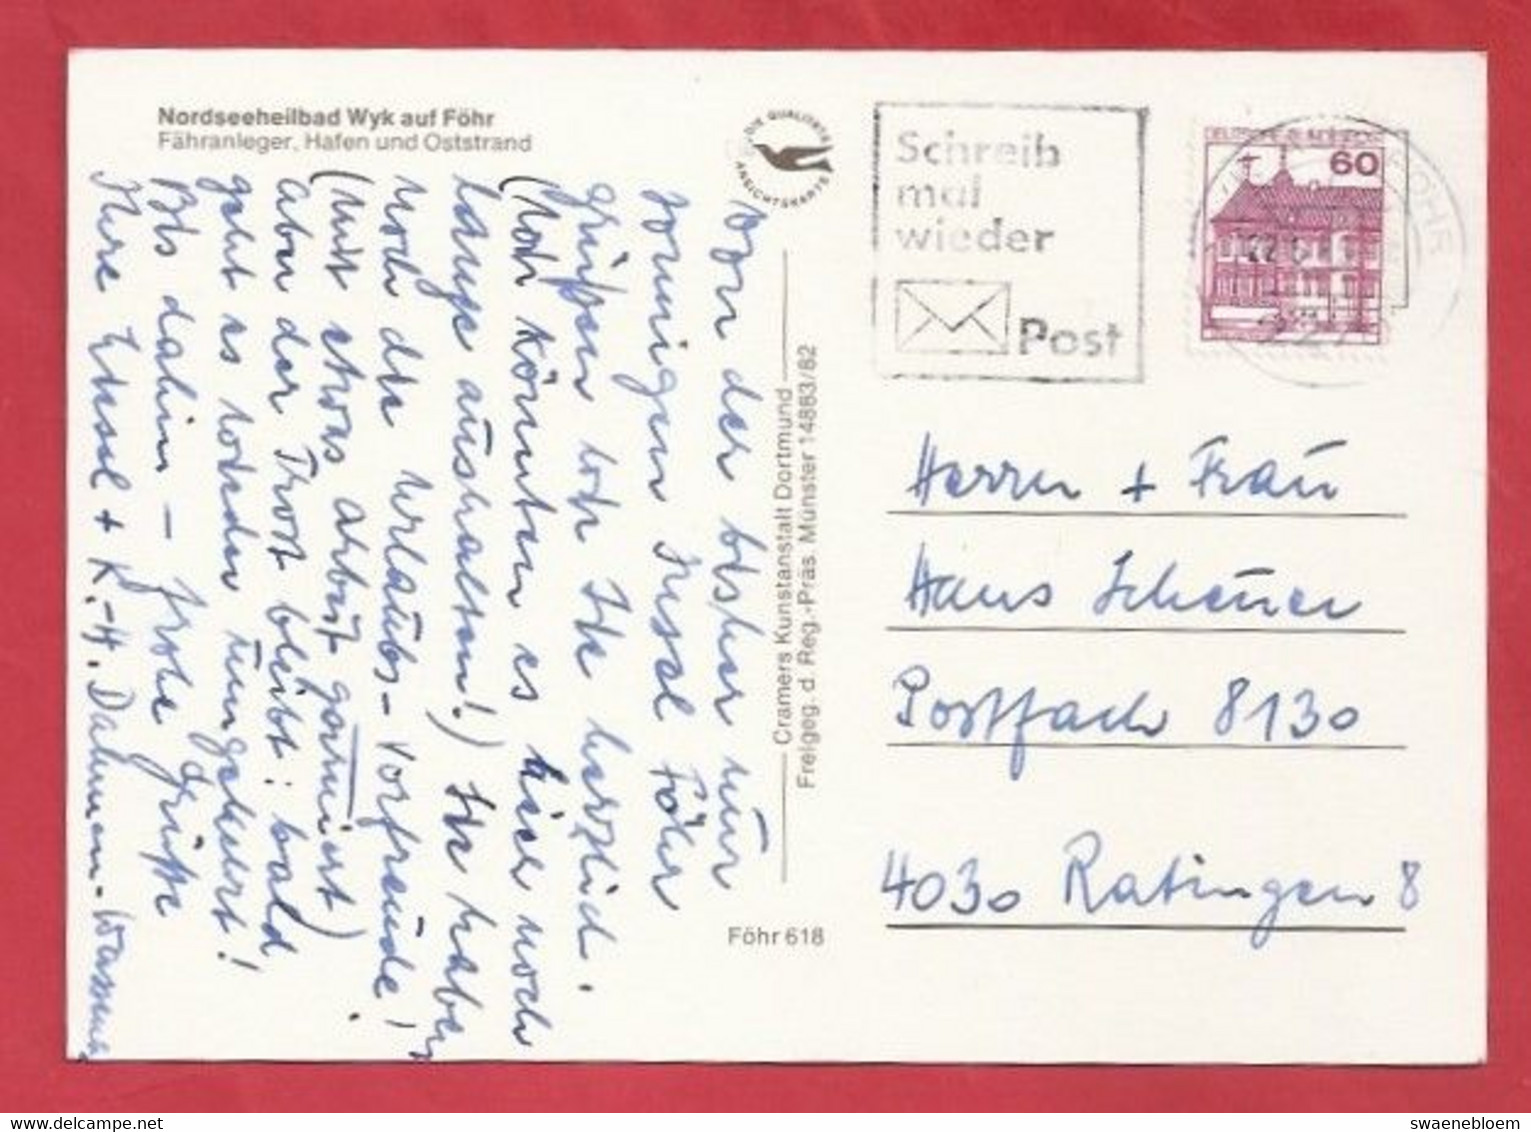 Nordseeheilbad Wyk auf Föhr
Fähranleger, Hafen und Oststrand
DIE QUALITÄTS
ANSICHTSKARTE
Schreib
mal
wieder
Post
DEUTSCHE BUNDESPOST
60
FÖHR
Von der bisher nur
sonnigen Insel Föhr
grüßen wir Sie herzlich.
(Wir könnten es hier noch
lange aushalten!) Sie haben
noch die Urlaubs-Vorfreude!
(mit etwas Arbeit garniert)
aber der Trost bleibt: bald
geht es wieder umgekehrt!
Bis dahin – frohe Grüße
Ihre Ursel + K.-H. Dahmen-Wassen
Cramers Kunstanstalt Dortmund
Freigeg. d. Reg.-Präs. Münster 14883/82
Föhr 618
Herrn + Frau
Hans Scheuer
Postfach 8130
4030 Ratingen 8
swaenebloem
delcampe.net